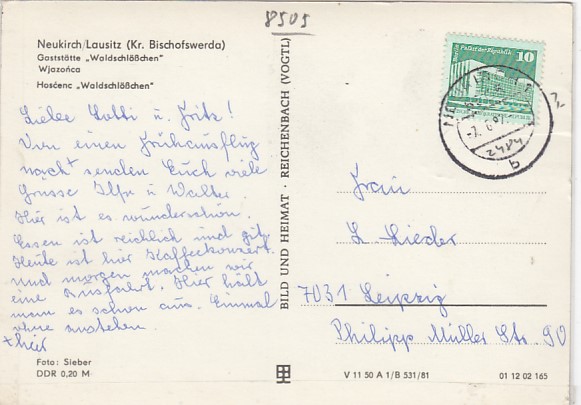 8505
Neukirch/Lausitz (Kr. Bischofswerda)
Gaststätte „Waldschlößchen“
Wjazońca
Hosćenc „Waldschlößchen“
Liebe Lotti u Fritz!
Von einen Frühausflug
nach+ senden Euch viele
Grüsse Ilse u Walter.
Hier ist es wunderschön.
Essen ist reichlich und gut.
Heute ist hier Kaffeekonzert
und morgen machen wir
eine Ausfahrt. Hier hält
man es schon aus. Einmal
ohne anstehen.
+hier
Foto: Sieber
DDR 0,20 M
BILD UND HEIMAT · REICHENBACH (VOGTL)
10
Palast der Republik
Frau
L. Lieder
7031 Leipzig
Philipp Müller Str. 90
V 11 50 A 1/B 531/81
01 12 02 165